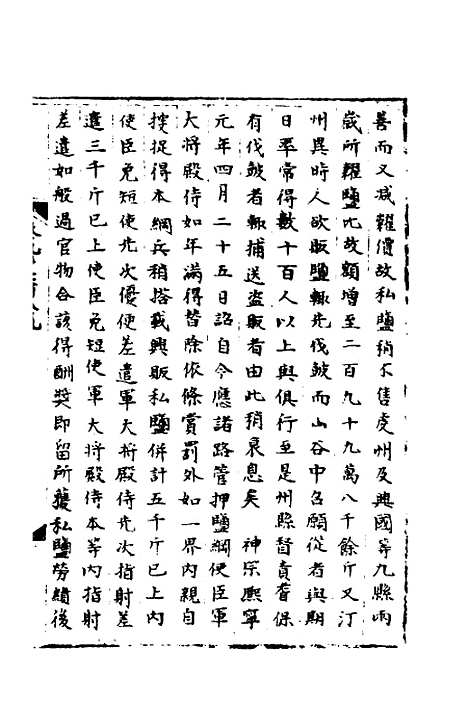 善而又减糴價故私鹽稍不售虔州及興國等九縣兩
歲所糶鹽比故額增至二百九十九萬八千餘斤又汀
州異時人欲販鹽輒先伐鼓而山谷中召願從者與期
日率常得數十百人以上與俱行至是州縣督責耆保
有伐鼓者輒捕送盜販者由此稍衰息矣　神宗熙寧
元年四月二十五日詔自今應諸路管押鹽綱使臣軍
大將殿侍如年滿得替除依條賞罰外如一界內親自
搜捉得本綱兵稍搭載興販私鹽併計五千斤已上內
使臣免短使先次優便差遣軍大將殿侍先次指射差
遣三千斤已上使臣免短使軍大將殿侍本等內指射
差遣如般過官物合該得酬獎即留所獲私鹽勞績後